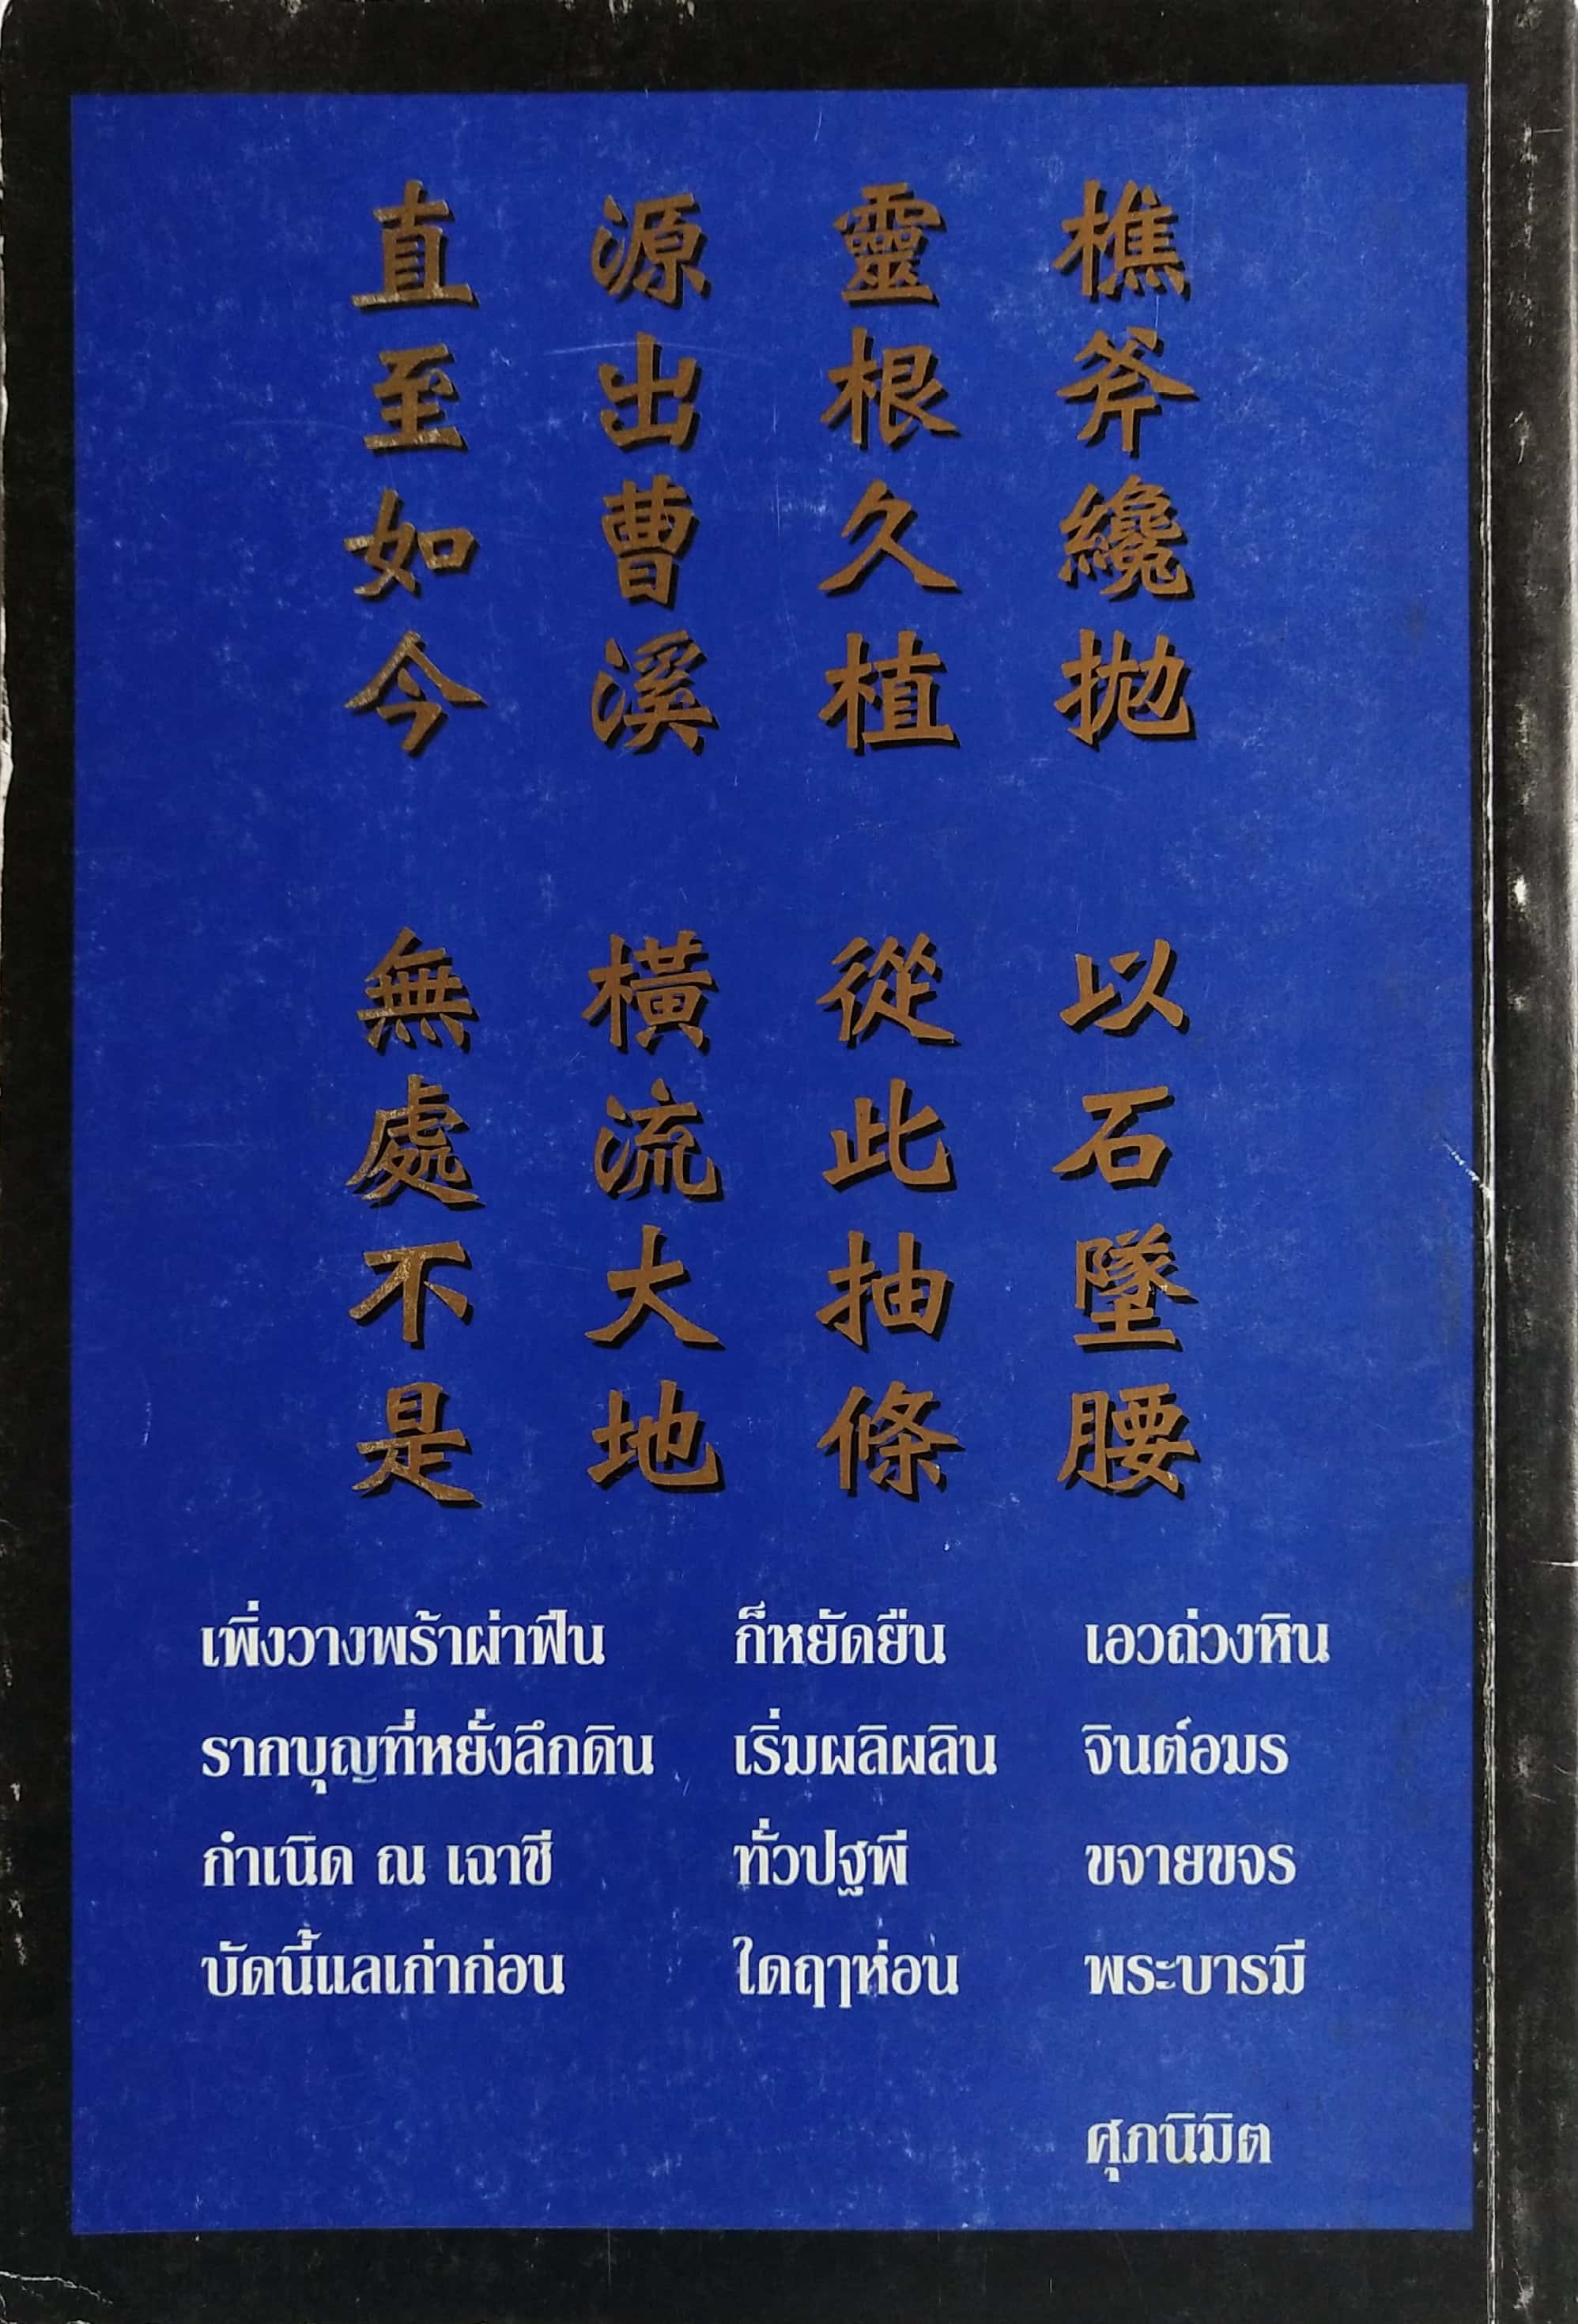 樵斧纔拋 以石墜腰
靈根久植 從此抽條
源出曹溪 橫流大地
直至如今 無處不是
เพิ่งวางพร้าผ่าฟืน ก็หยัดยืน เอวถ่วงหิน
รากบุญที่หยั่งลึกดิน เริ่มผลิผลิน จินต์อมร
กำเนิด ณ เฉาซี ทั่วปฐพี ขจายขจร
บัดนี้แลเก่าก่อน ใดฤๅห่อน พระบารมี
ศุภนิมิต